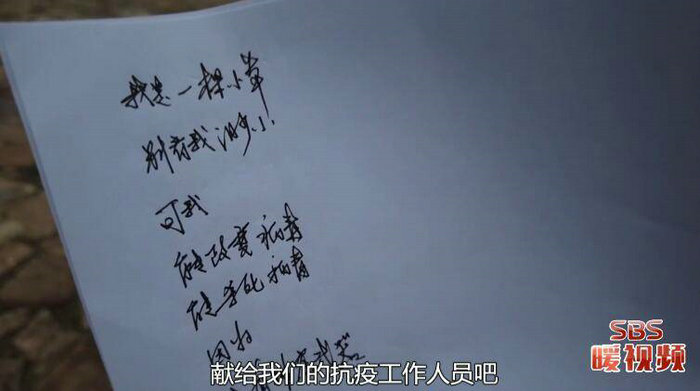 我是一棵小草
别看我渺小
可我
能改变病毒
能杀死病毒
因为
献给我们的抗疫工作人员吧
SBS
暖视频